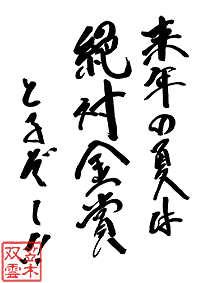 来年の夏は
絶対金賞
とるぞー!!
笠木
双雲